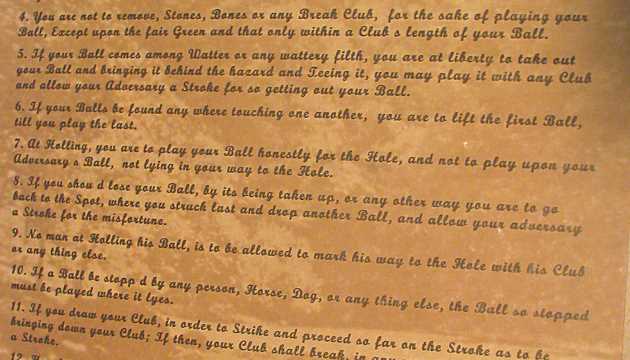 4. You are not to remove, Stones, Bones or any Break Club, for the sake of playing your
Ball, Except upon the fair Green and that only within a Club s length of your Ball.
5. If your Ball comes among Watter or any wattery filth, you are at liberty to take out
your Ball and bringing it behind the hazard and Teeing it, you may play it with any Club
and allow your Adversary a Stroke for so getting out your Ball.
6. If your Balls be found any where touching one another, you are to lift the first Ball,
till you play the last.
7. At Holling, you are to play your Ball honestly for the Hole, and not to play upon your
Adversary s Ball, not lying in your way to the Hole.
8. If you shou d lose your Ball, by its being taken up, or any other way you are to go
back to the Spot, where you struck last and drop another Ball, and allow your adversary
a Stroke for the misfortune.
9. No man at Holling his Ball, is to be allowed to mark his way to the Hole with his Club
or any thing else.
10. If a Ball be stopp d by any person, Horse, Dog, or any thing else, the Ball so stopped
must be played where it lyes.
11. If you draw your Club, in order to Strike and proceed so far on the Stroke as to be
bringing down your Club; If then, your Club shall break, in any
a Stroke.
12.